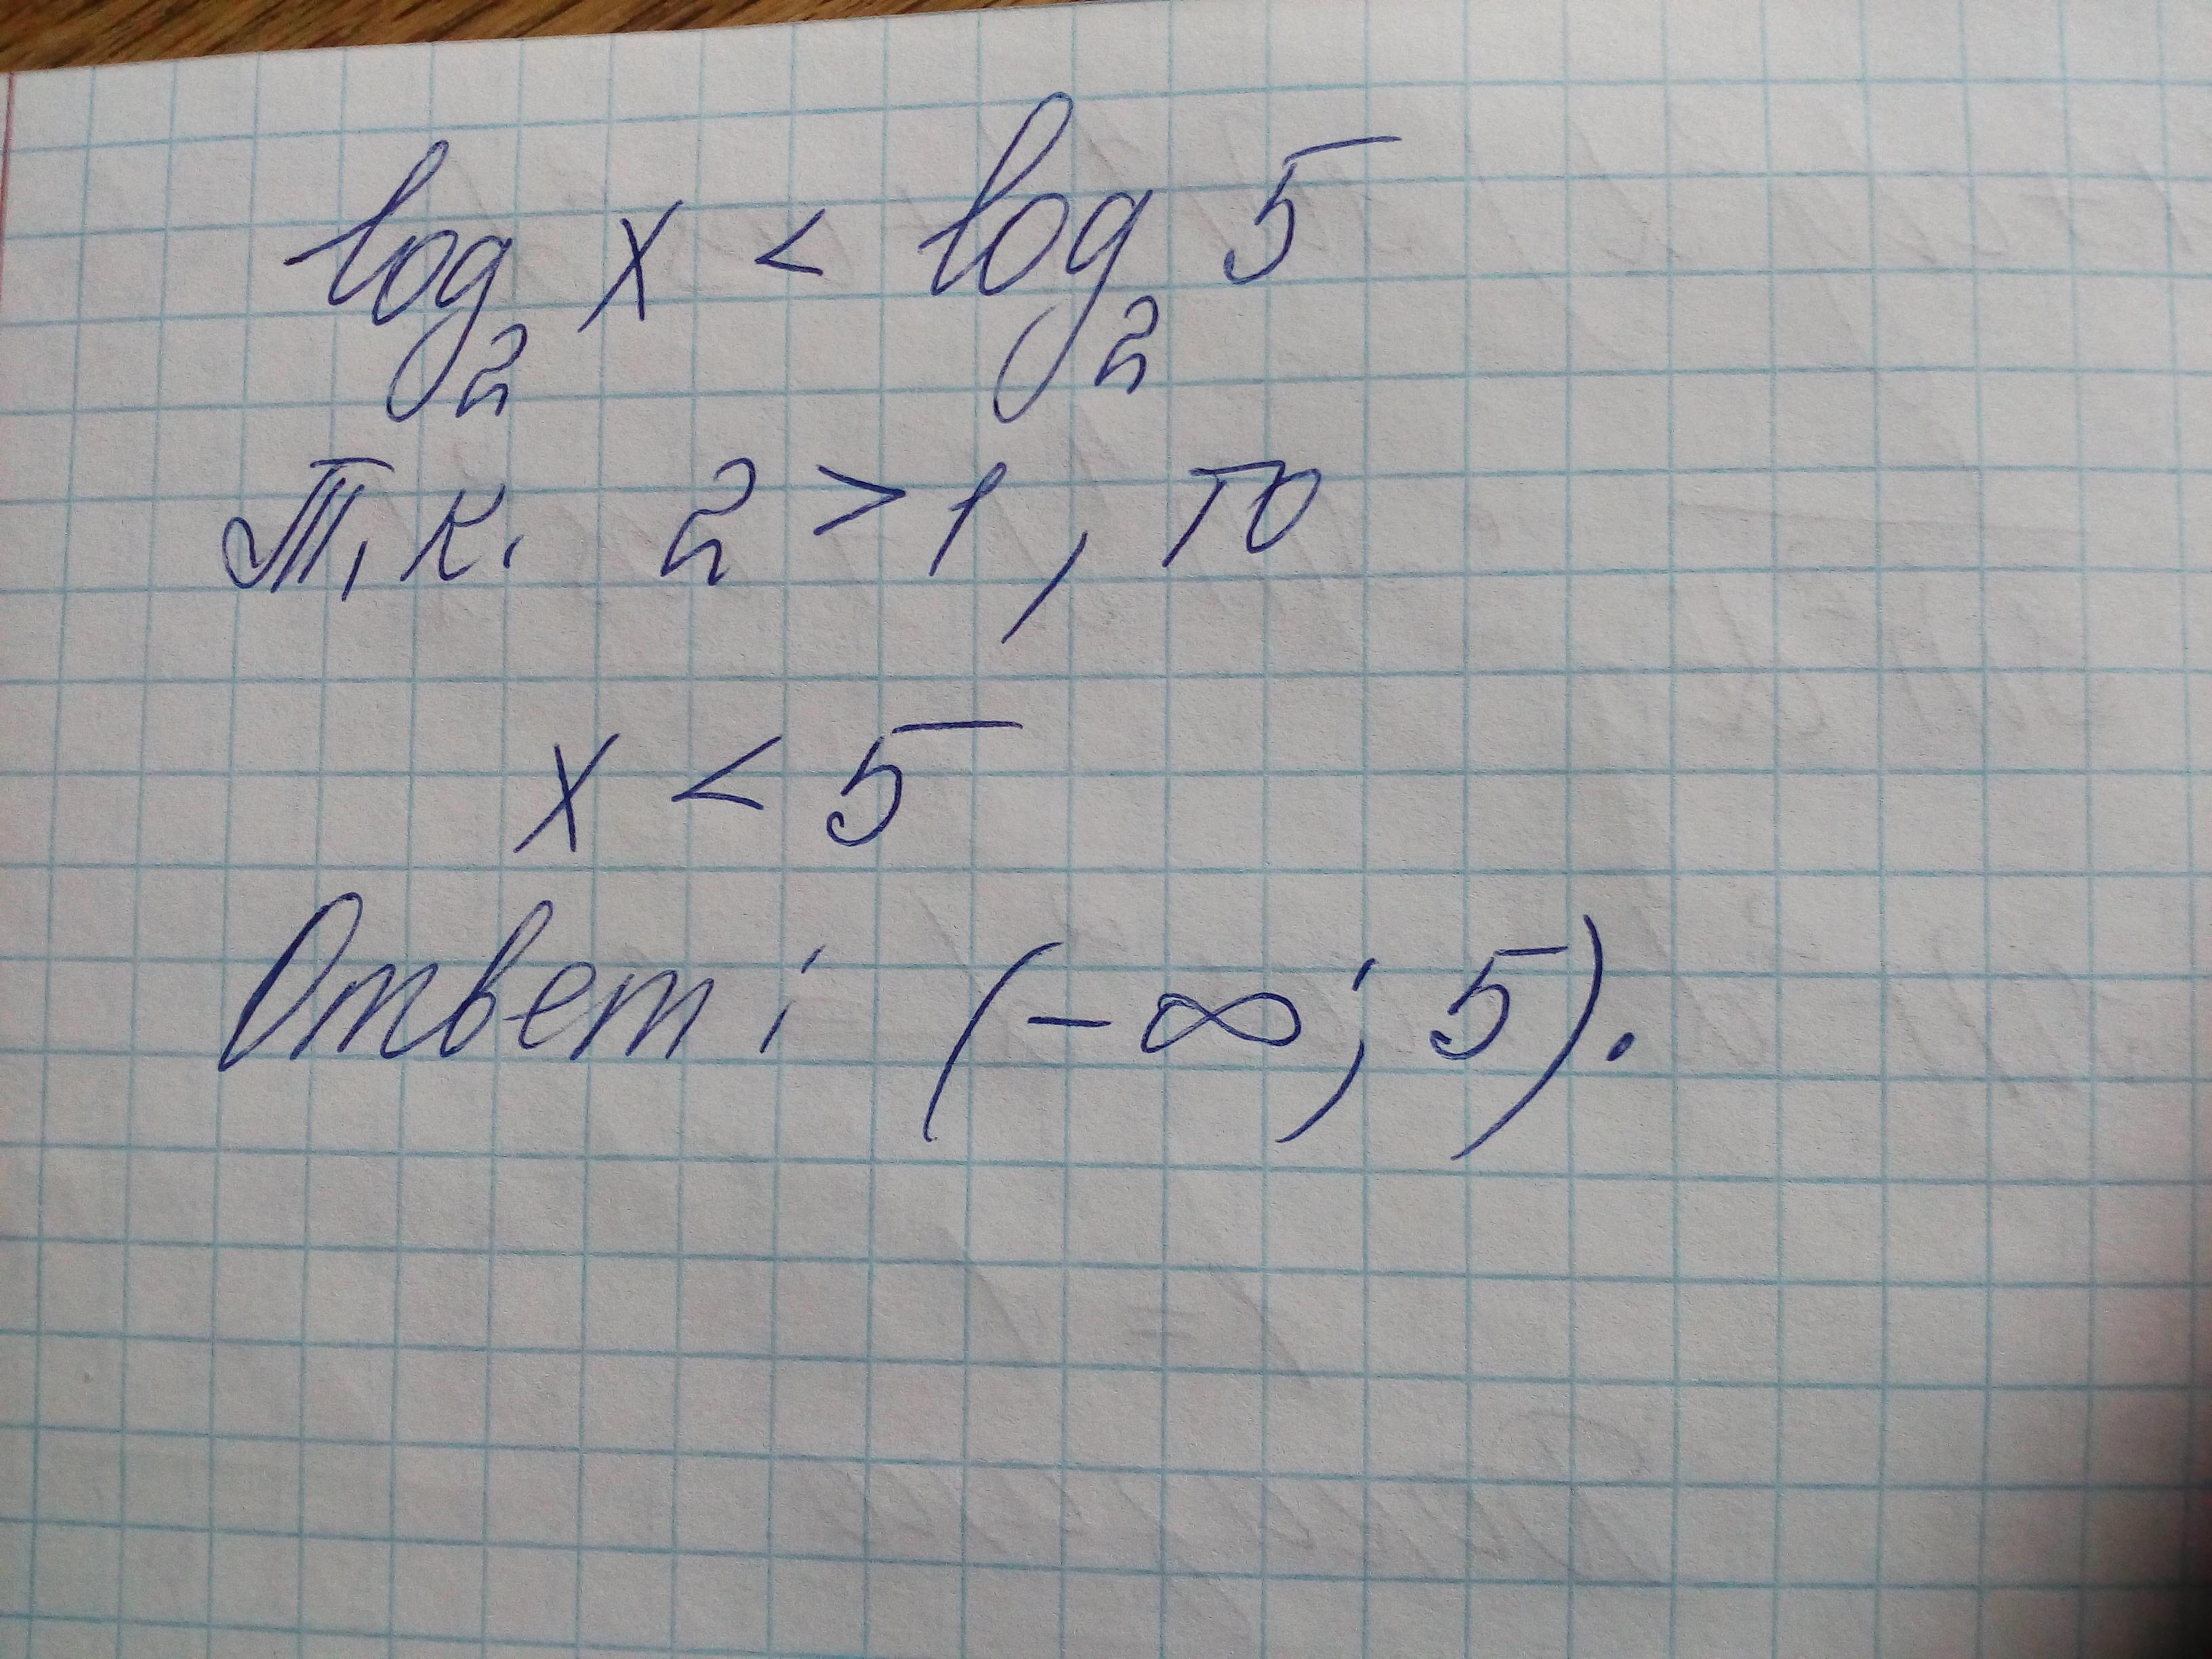 log₂ x < log₂ 5
Т.к. 2 > 1, то
x < 5
Ответ: (-∞; 5).